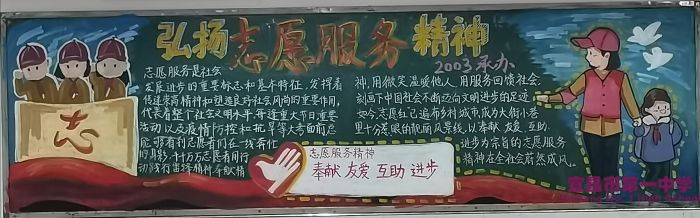 弘扬志愿服务精神
2003承办
志愿服务是社会
发展进步的重要标志和基本特征,发挥着
传递崇高精神和塑造良好社会风尚的重要作用,
代表着整个社会文明水平。每逢重大节日重要
活动以及疫情防控和抗旱等大考面前总
能够看到志愿者们在一线奔忙
的身影,千千万万志愿者用行
动践行雷锋精神奉献精
神,用微笑温暖他人,用服务回馈社会,
刻画下中国社会不断迈向文明进步的足迹。
如今,志愿红已遍布乡村城市,成为大街小巷
里十分惹眼的靓丽风景线,以奉献、友爱、互助、
进步为宗旨的志愿服务
精神在全社会蔚然成风。
志
志愿服务精神
奉献 友爱 互助 进步
宜昌市第一中学